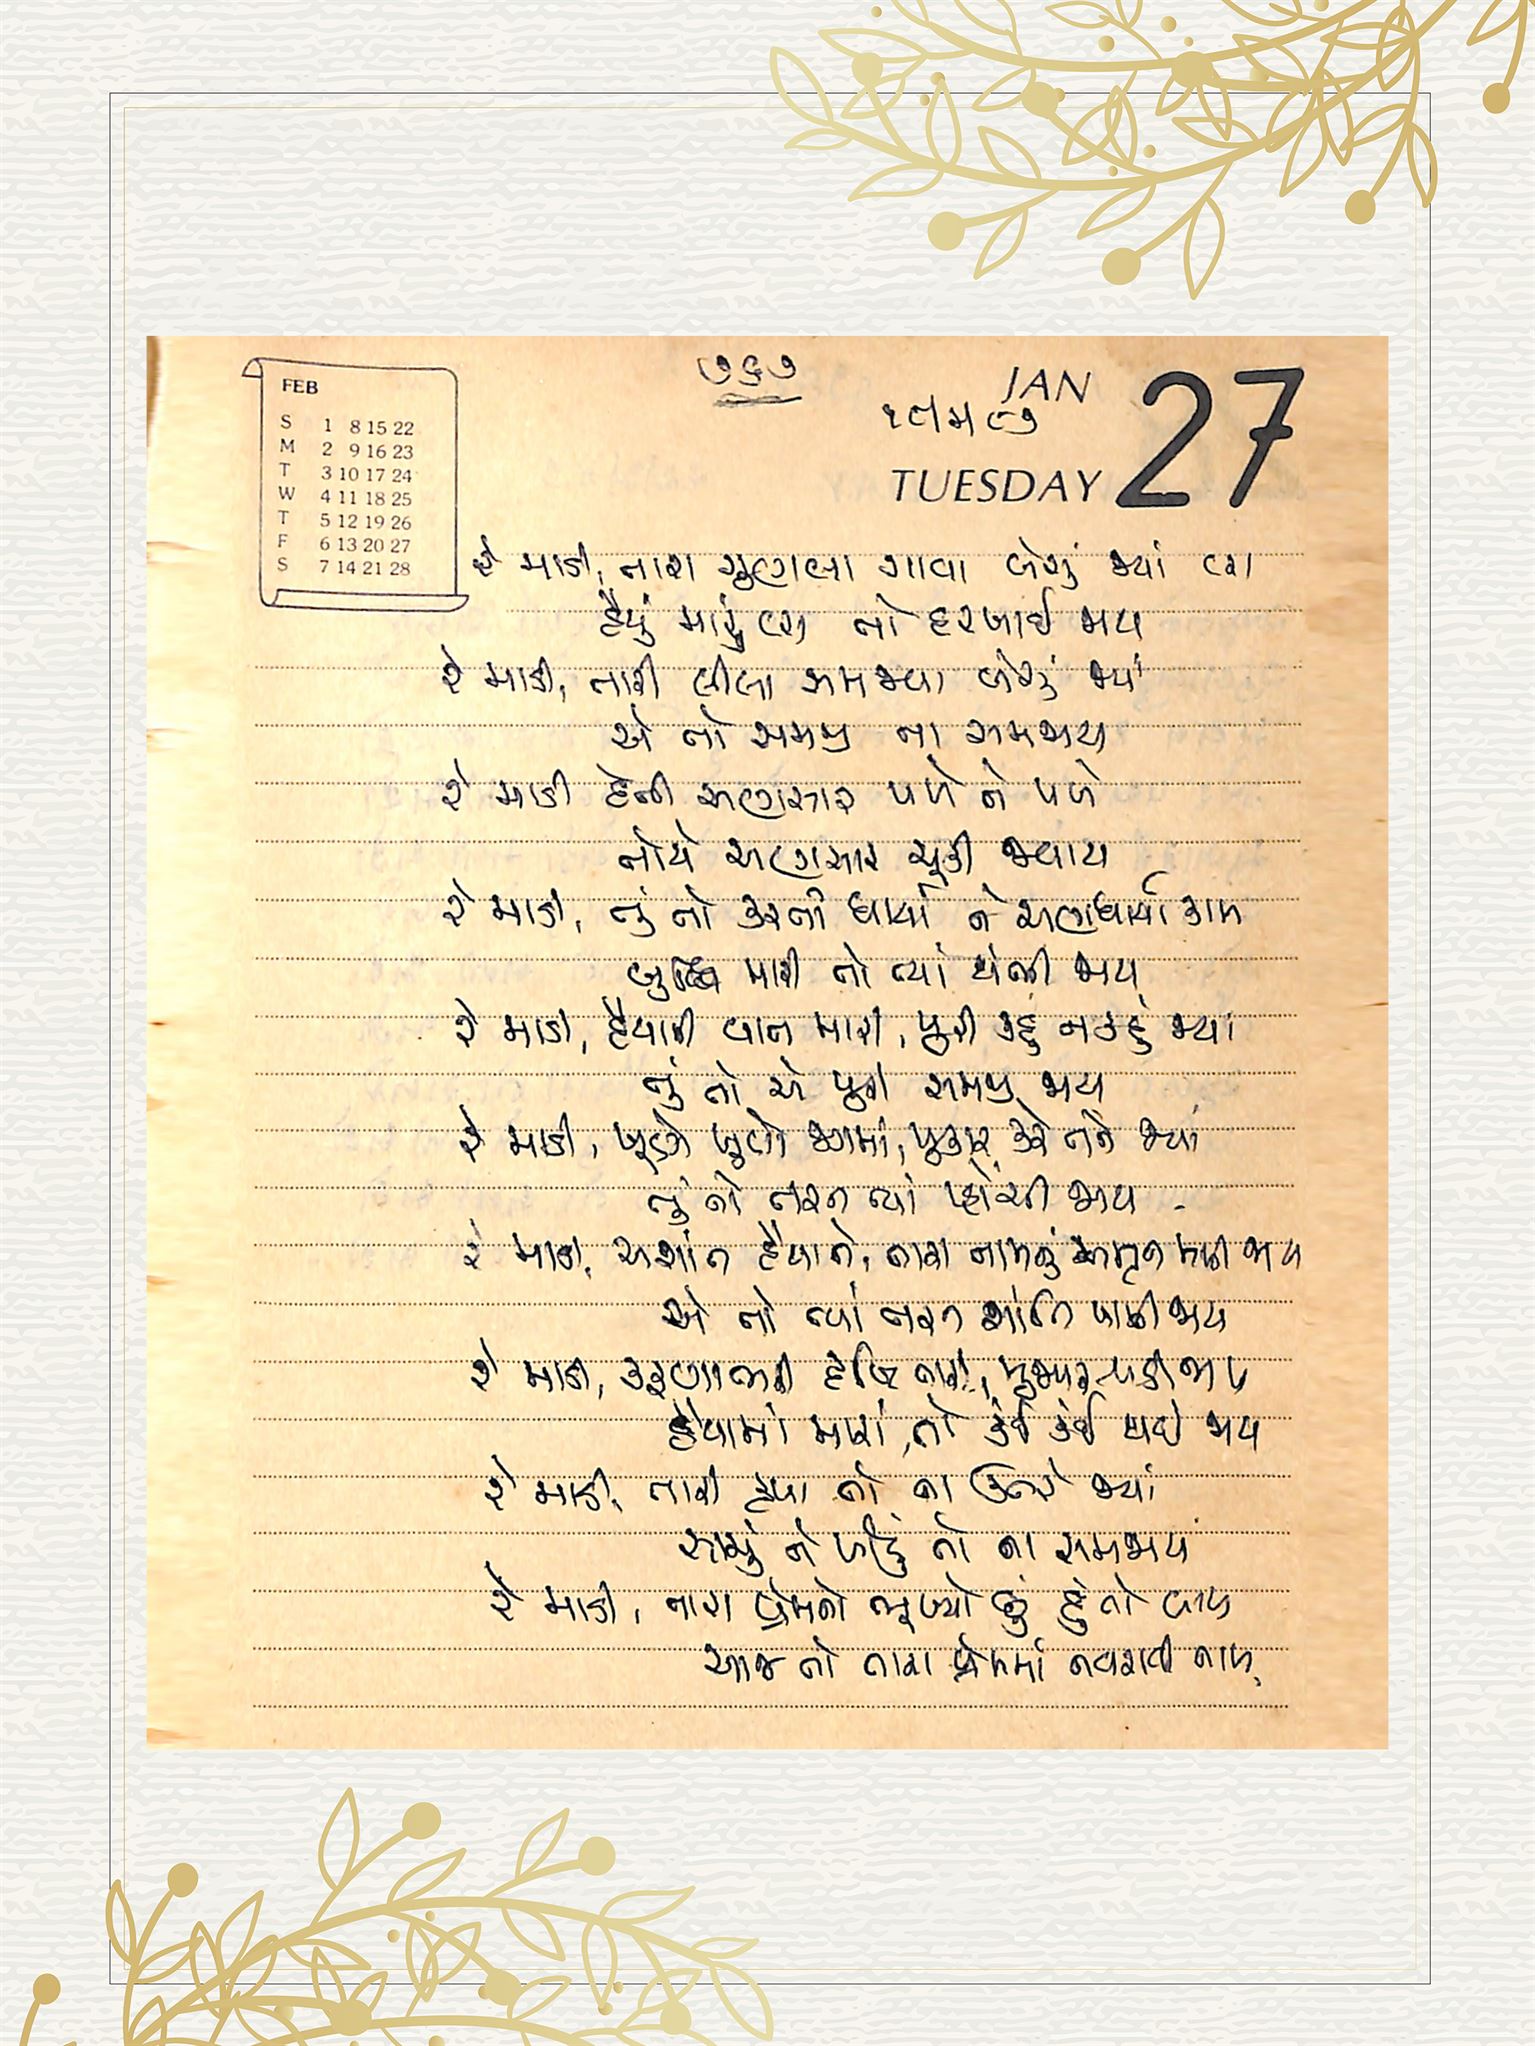 ૭૬૭
JAN
27
TUESDAY
FEB
S 1 8 15 22
M 2 9 16 23
T 3 10 17 24
W 4 11 18 25
T 5 12 19 26
F 6 13 20 27
S 7 14 21 28
રે માડી, તારા ગુણલા ગાવા બેસું જ્યાં
હૈયું મારું તો હરખાઈ જાય
રે માડી, તારી લીલા સમજવા બેસું જ્યાં
એ તો સમજી ના સમજાય
રે માડી દેતી અણસાર પળે ને પળે
તોયે અણસાર ચૂકી જવાય
રે માડી, તું તો કરતી ધાર્યા ને અણધાર્યા કામ
બુદ્ધિ મારી તો ત્યાં થંભી જાય
રે માડી, હૈયાની વાત મારી, પૂરી કહું ન કહું જ્યાં
તું તો એ પૂરી સમજી જાય
રે માડી, ખૂણે ખૂણે જગમાં, પુકાર કરે તને જ્યાં
તું તો તરત ત્યાં પ્હોંચી જાય
રે માડી, અશાંત હૈયાને, તારા નામનું અમૃત મળી જાય
એ તો ત્યાં તરત શાંતિ પામી જાય
રે માડી, કરુણાભરી દૃષ્ટિ તારી, મુજ પર પડી જાય
હૈયામાં મારાં, તો કંઈ કંઈ થઈ જાય
રે માડી, તારી કૃપા તો ના ઉતરે જ્યાં
સાચું ને ખોટું તો ના સમજાય
રે માડી, તારા પ્રેમનો ભૂખ્યો છું હું તો બાળ
આજ તો તારા પ્રેમમાં નવરાવી નાખ